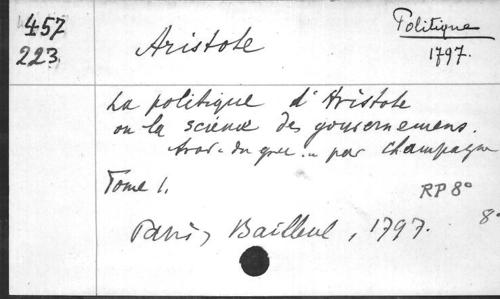 457
223
Aristote
Politique
1797.
La politique d'Aristote
ou la science des gouvernemens.
Trad. du grec ... par Champagne
Tome 1.
RP 8°
8°
Paris, Bailleul, 1797.